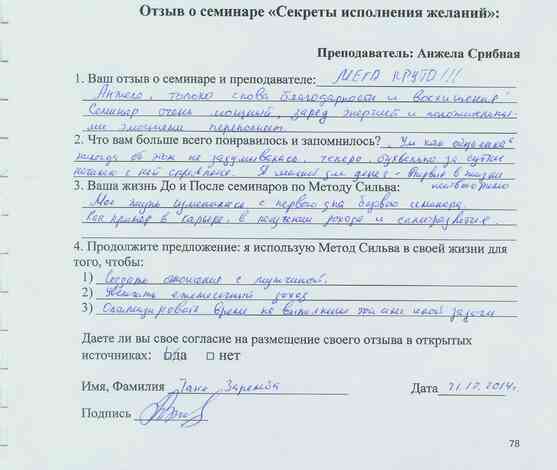 Отзыв о семинаре «Секреты исполнения желаний»:
Преподаватель: Анжела Срибная
1. Ваш отзыв о семинаре и преподавателе: МЕГА КРУТО!!!
Анжела, только слова благодарности и восхищения!
Семинар очень мощный, заряд энергией и положительны-
ми эмоциями переполняет.
2. Что вам больше всего понравилось и запомнилось?
никогда об этом не задумывалась, теперь, буквально за сутки
3. Ваша жизнь До и После семинаров по Методу Сильва:
Моя жизнь изменилась с первого дня базового семинара.
Как пример в карьере, в получении дохода и саморазвития.
4. Продолжите предложение: я использую Метод Сильва в своей жизни для
того, чтобы:
1) Создать отношения с мужчиной.
2) ежемесячный доход
3) время на выполнение той или иной задачи
Даете ли вы свое согласие на размещение своего отзыва в открытых
источниках: да нет
Имя, Фамилия Заремба
Дата 21.10.2014г.
Подпись
78